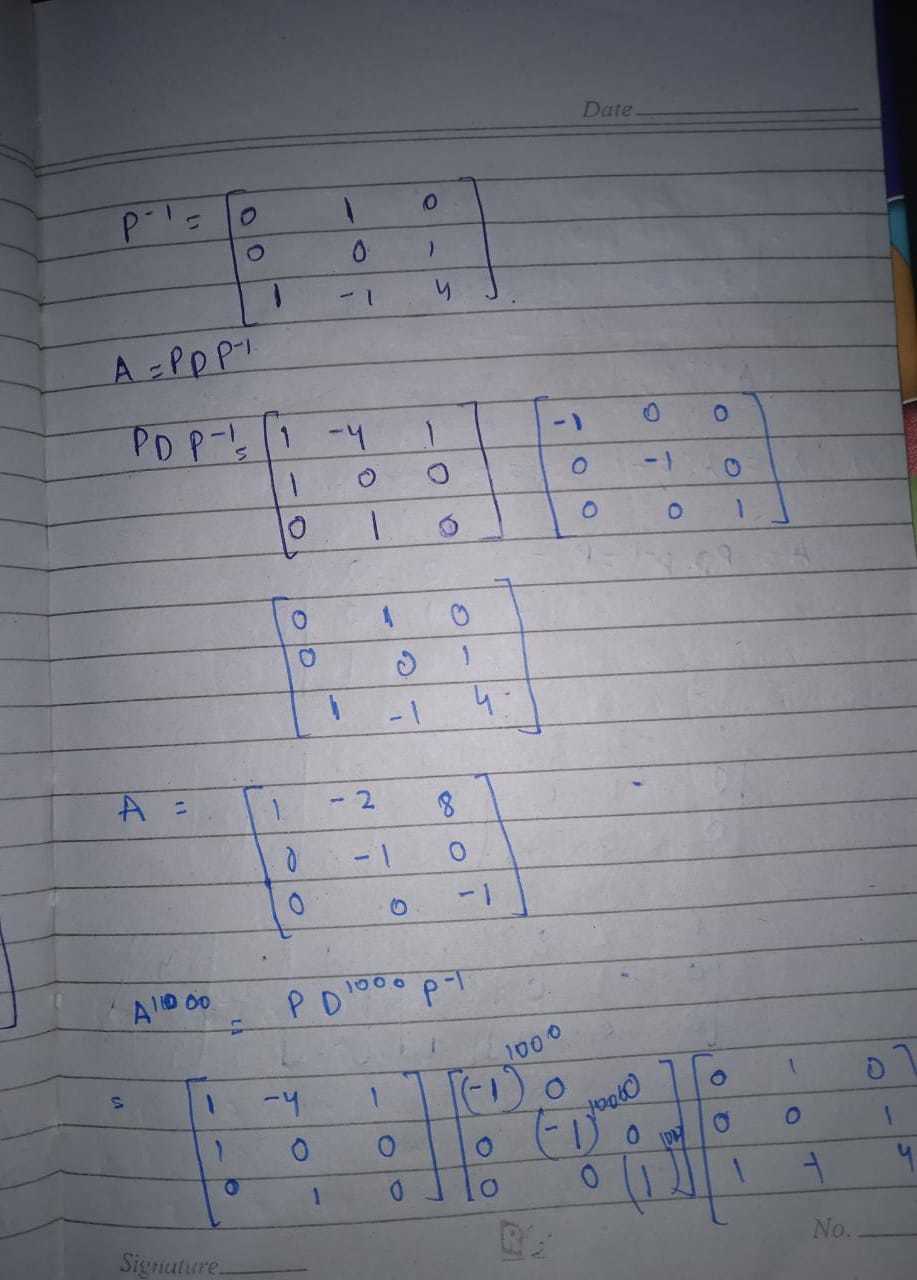 Date
P⁻¹ = [0 1 0
0 0 1
1 -1 4].
A = PDP⁻¹
PDP⁻¹ = [1 -4 1 [-1 0 0
1 0 0 0 -1 0
0 1 0] 0 0 1]
[0 1 0
0 0 1
1 -1 4]
A = [1 -2 8
0 -1 0
0 0 -1]
A¹⁰⁰⁰ = P D¹⁰⁰⁰ P⁻¹
= [1 -4 1] [(-1)¹⁰⁰⁰ 0 0] [0 1 0]
[1 0 0] [0 (-1)¹⁰⁰⁰ 0] [0 0 1
[0 1 0] [0 0 (1)¹⁰⁰⁰] [1 -1 4
No.
Signature